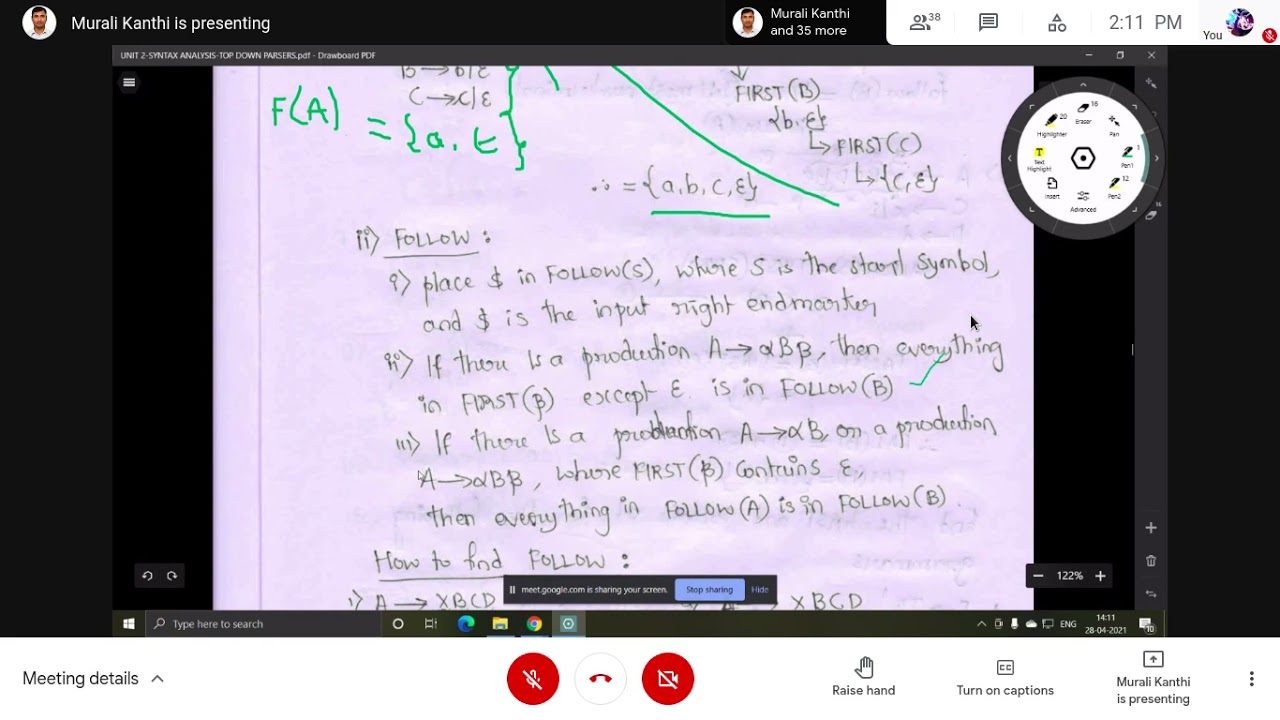 Murali Kanthi is presenting
Murali Kanthi
and 35 more
38
2:11 PM
You
UNIT 2-SYNTAX ANALYSIS-TOP DOWN PARSERS.pdf - Drawboard PDF
B→b|ε
C→c|ε
F(A) = {a, ε}
FIRST(B)
{b,ε}
↳FIRST(C)
↳{c,ε}
∴ = {a,b,c,ε}
Highlighter
20
Eraser
16
Pan
Text Highlight
Pen1
1
Insert
Advanced
Pen2
12
ii) FOLLOW:
i) place $ in FOLLOW(S), where S is the start symbol,
and $ is the input right endmarker
ii) If there is a production A→αBβ, then everything
in FIRST(β) except ε is in FOLLOW(B)
iii) If there is a production A→αB, or a production
A→αBβ, where FIRST(β) contains ε,
then everything in FOLLOW(A) is in FOLLOW(B)
How to find FOLLOW:
1) A→XBCD
A→XBCD
meet.google.com is sharing your screen.
Stop sharing
Hide
122%
Type here to search
ENG
14:11
28-04-2021
10
Meeting details
Raise hand
Turn on captions
Murali Kanthi
is presenting